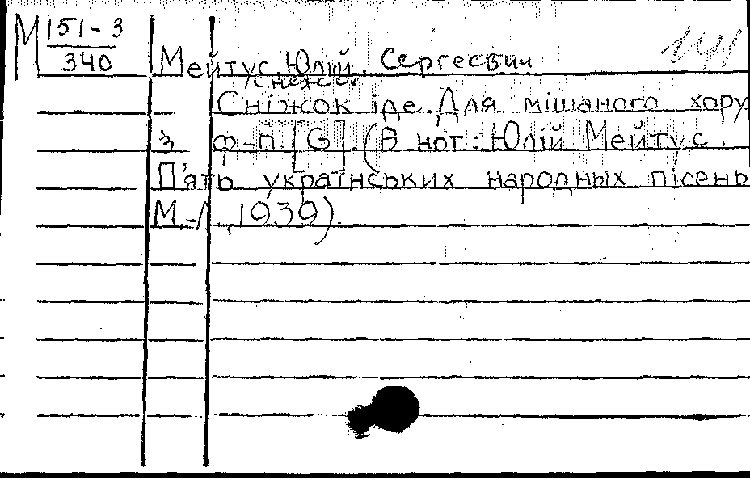 М 151-3
340
Мейтус Юлій Сергеевич
Сніжок іде. Для мішаного хору
з ф-п. [G]. (В нот: Юлій Мейтус.
П'ять українських народных пісень
М.-Л., 1939).